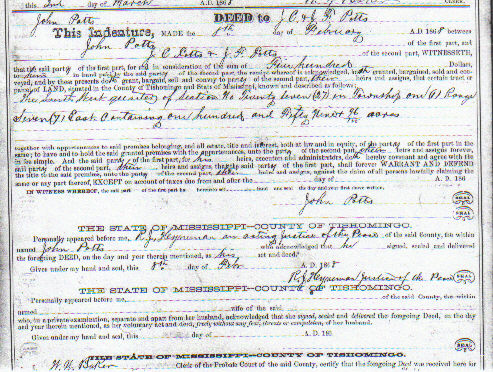 2nd day of March A.D. 1868 CLERK.
John Potts DEED to J. C. & J. F. Potts
This Indenture, MADE the 8th day of February A.D. 1868 between
John Potts of the first part, and
J. C. Potts & J. F. Potts of the second part, WITNESSETH,
that the said party of the first part, for and in consideration of the sum of Five hundred Dollars,
in hand paid by the said party of the second part, the receipt whereof is acknowledged, hath granted, bargained, sold and con-
veyed, and by these presents doth grant, bargain, sell and convey to said party of the second part, their heirs and assigns, that certain tract or
parcel of LAND, situated in the County of Tishomingo and State of Mississippi, known and described as follows:
The South West quarter of Section No Twenty Seven (27) in Township one (1) Range
Seven (7) East. Containing one hundred and Fifty Nine & 96 acres
together with appurtenances to said premises belonging, and all estate, title and interest, both at law and in equity, of the party of the first part in the
same; to have and to hold the said granted premises with the appurtenances, unto the party of the second part their heirs and assigns forever,
in fee simple. And the said party of the first part, for his heirs, executors and administrators, doth hereby covenant and agree with the
said party of the second part, their heirs and assigns that the said party of the first part, shall forever WARRANT AND DEFEND
the title of the said premises, unto the party of the second part their heirs and assigns, against the claim of all persons lawfully claiming the
same or any part thereof, EXCEPT on account of taxes due from and after the day of A. D. 186
IN WITNESS WHEREOF, the said part of the first part hereunto set hand and seal the day and year first above written.
John Potts
SEAL
SEAL
THE STATE OF MISSISSIPPI-COUNTY OF TISHOMINGO.
Personally appeared before me, R. J. Heyneman an acting Justice of the Peace of the said County, the within
named John Potts who acknowledged that he signed, sealed and delivered
the foregoing DEED, on the day and year therein mentioned, as his act and deed
Given under my hand and seal, this 8th day of Feb A. D. 1868
R. J. Heyneman Justice of the Peace SEAL
THE STATE OF MISSISSIPPI-COUNTY OF TISHOMINGO.
Personally appeared before me, of the said County, the within
named wife of the said
who, in a private examination, separate and apart from her husband, acknowledged that she signed, sealed and delivered the foregoing Deed, on the day
and year therein mentioned, as her voluntary act and deed, freely without any fear, threats or compulsion, of her husband.
Given under my hand and seal, this day of A. D. 186
SEAL
THE STATE OF MISSISSIPPI-COUNTY OF TISHOMINGO.
I, Clerk of the Probate Court of the said County, certify that the foregoing Deed was received here for